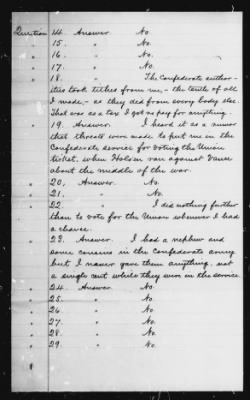 Question 14. Answer. No.
" 15. " No.
" 16. " No.
" 17. " No.
" 18. " The Confederate author-
ities took tithes from me, - the tenth of all
I made, - as they did from every body else
That was as a tax I got no pay for anything.
" 19. Answer. I heard it as a rumor
that threats were made to put me in the
Confederate service for voting the Union
ticket, when Holden ran against Vance
about the middle of the war.
" 20. Answer. No.
" 21. " No.
" 22. " I did nothing further
than to vote for the Union whenever I had
a chance.
" 23. Answer. I had a nephew and
some cousins in the Confederate army
but I never gave them anything, not
a single cent while they were in the service
" 24. Answer. No.
" 25. " No.
" 26. " No.
" 27. " No.
" 28. " No.
" 29. " No.